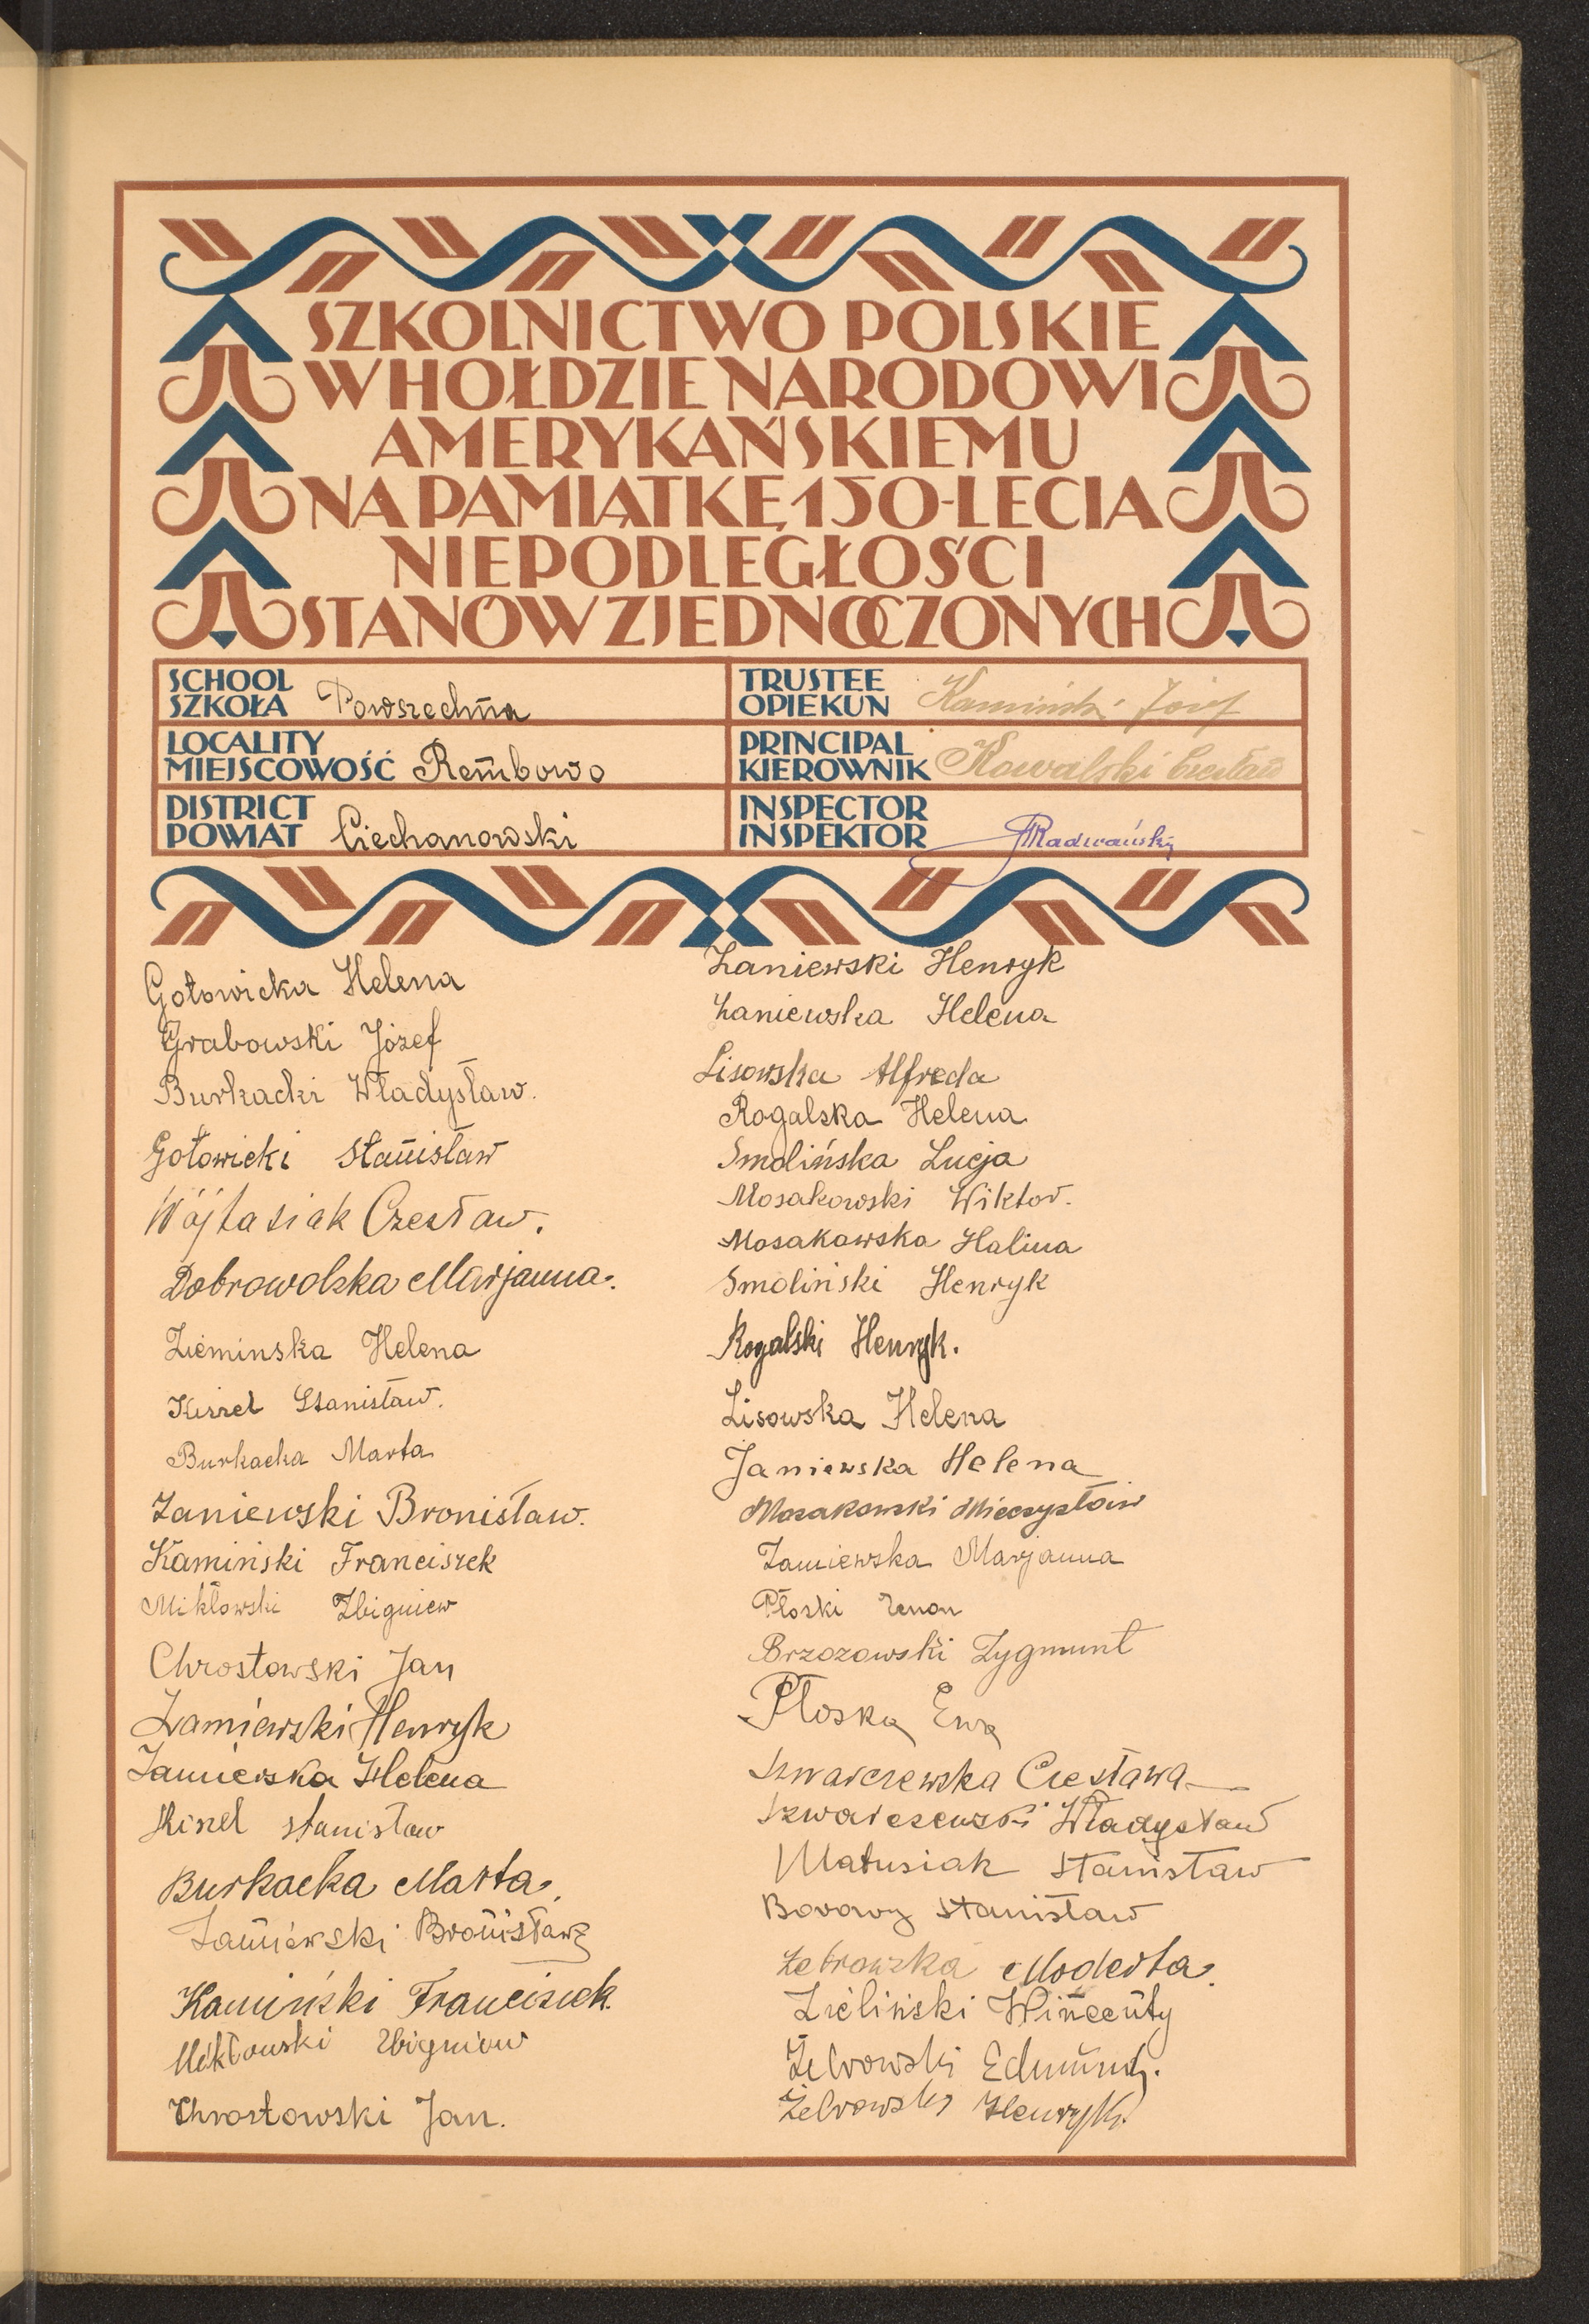 SZKOLNICTWO POLSKIE
W HOŁDZIE NARODOWI
AMERYKAŃSKIEMU
NA PAMIĄTKĘ 150-LECIA
NIEPODLEGŁOŚCI
STANÓW ZJEDNOCZONYCH
SCHOOL
SZKOŁA Powszechna
TRUSTEE
OPIEKUN Kamiński Józef
LOCALITY
MIEJSCOWOŚĆ Rembowo
PRINCIPAL
KIEROWNIK Kowalski Czesław
DISTRICT
POWIAT Ciechanowski
INSPECTOR
INSPEKTOR Radwański
Gołowicka Helena
Grabowski Józef
Burkacki Władysław.
Gołowicki Stanisław
Wójtasiak Czesław.
Dobrowolska Marjanna.
Zieminska Helena
Kisiel Stanisław.
Burkacka Marta
Zaniewski Bronisław.
Kamiński Franciszek
Mikłowski Zbigniew
Chrostowski Jan
Zaniewski Henryk
Zaniewska Helena
Kisiel Stanisław
Burkacka Marta.
Zaniewski Bronisław
Kamiński Franciszek.
Mikłowski Zbigniew
Chrostowski Jan.
Zaniewski Henryk
Zaniewska Helena
Lisowska Alfreda
Rogalska Helena
Smolińska Lucja
Mosakowski Wiktor.
Mosakowska Halina
Smoliński Henryk
Rogalski Henryk.
Lisowska Helena
Janiewska Helena
Mosakowski Mieczysław
Zaniewska Marjanna
Płoski Zenon
Brzozowski Zygmunt
Płoska Ewa
Szwarczewska Czesława
Szwarczewski Władysław
Matusiak Stanisław
Borowy Stanisław
Modesta.
Zieliński Wincenty
Żebrowski Edmund.
Żebrowski Henryk.